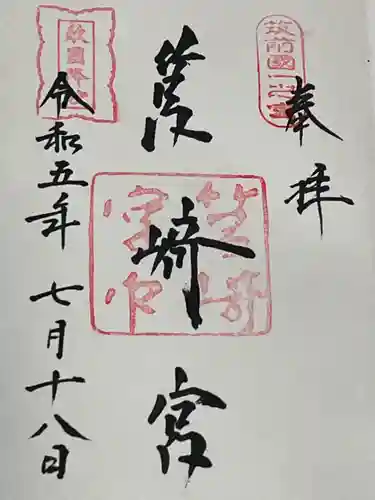 奉拝
筑前國一之宮
筥崎宮
筥崎宮印
敵國降伏
令和五年七月十八日